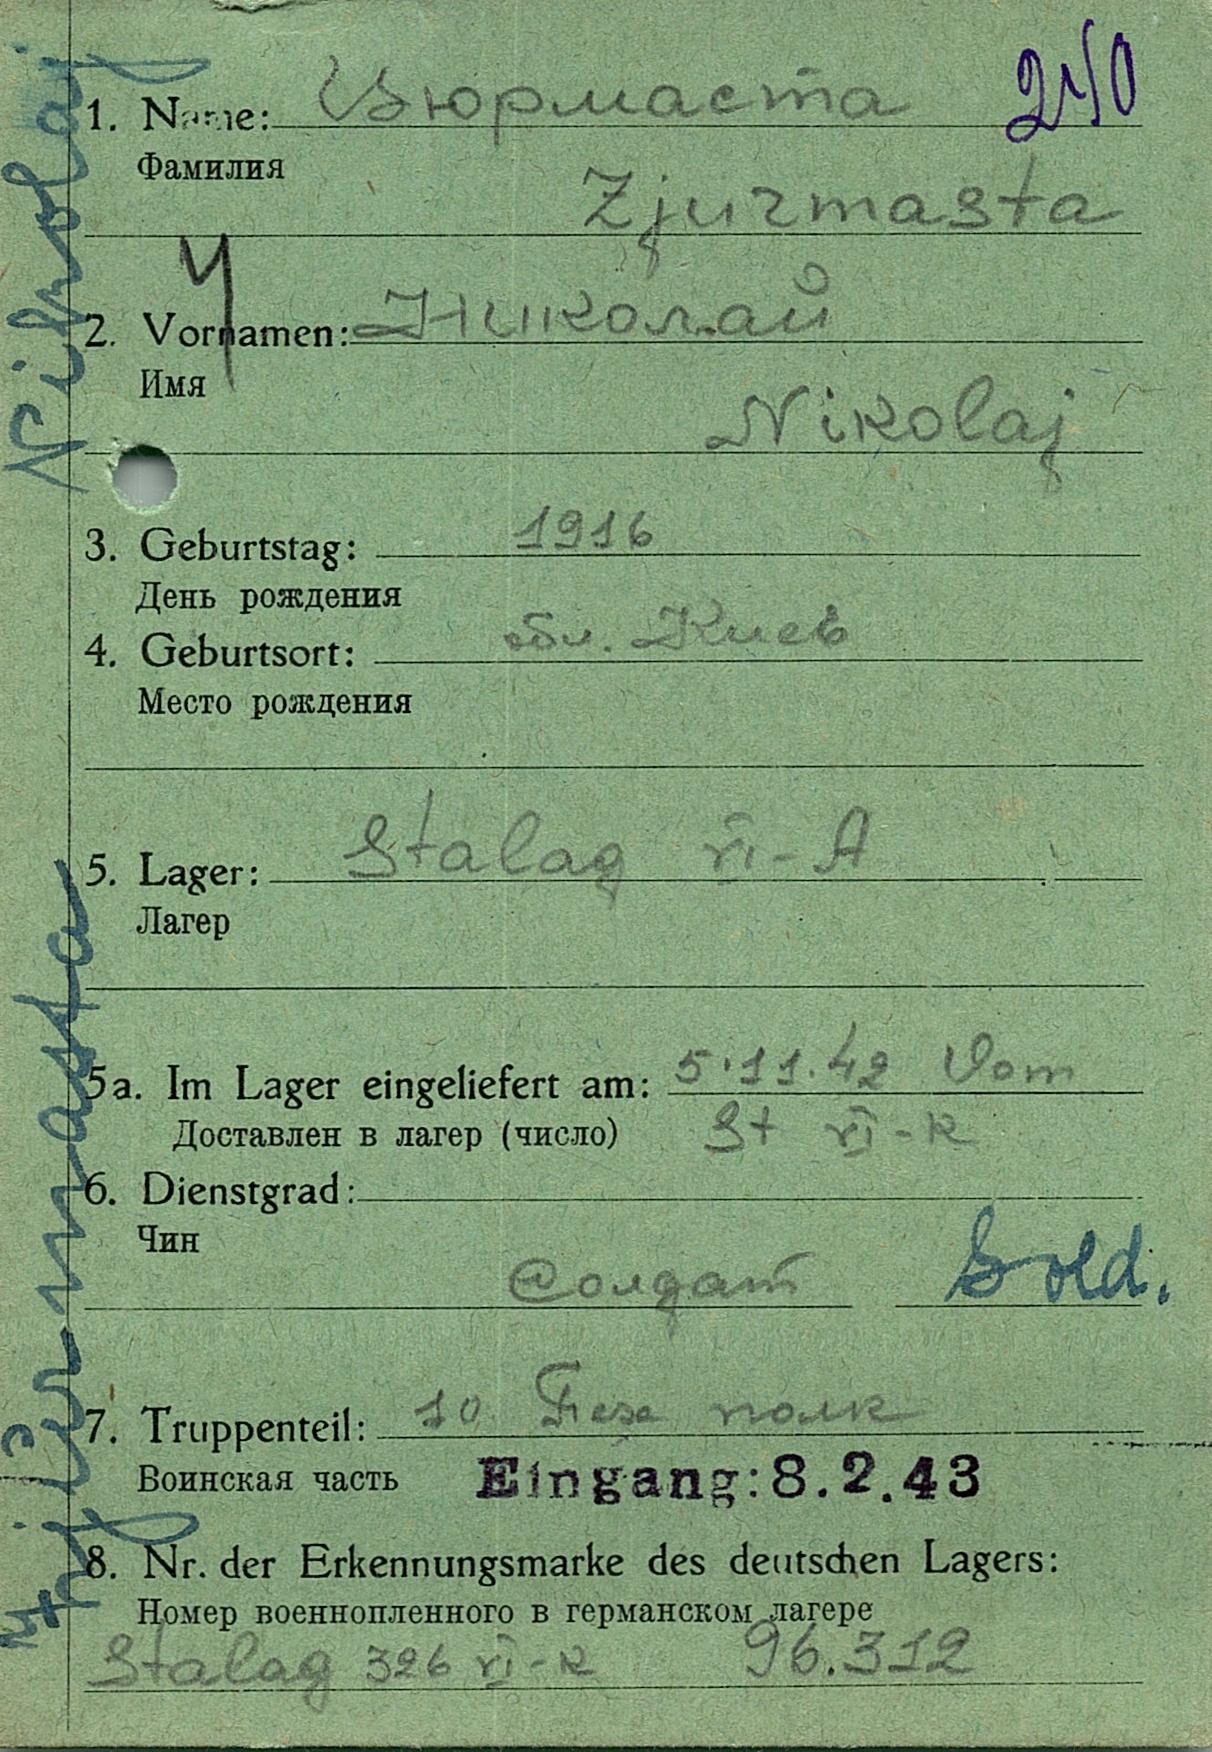 1. Name: Цюрмаста
240
Фамилия
Zjurmasta
Ч
2. Vornamen: Николай
Имя
Nikolaj
3. Geburtstag: 1916
День рождения
4. Geburtsort: обл. Киев
Место рождения
5. Lager: Stalag VI-A
Лагер
5a. Im Lager eingeliefert am: 5.11.42 Vom
Доставлен в лагер (число) St VI-K
6. Dienstgrad:
Чин
Солдат Sold.
7. Truppenteil: 10 полк
Воинская часть Eingang: 8.2.43
8. Nr. der Erkennungsmarke des deutschen Lagers:
Номер военнопленного в германском лагере
Stalag 326 VI-K 96.312
Zjurmasta Nikolaj